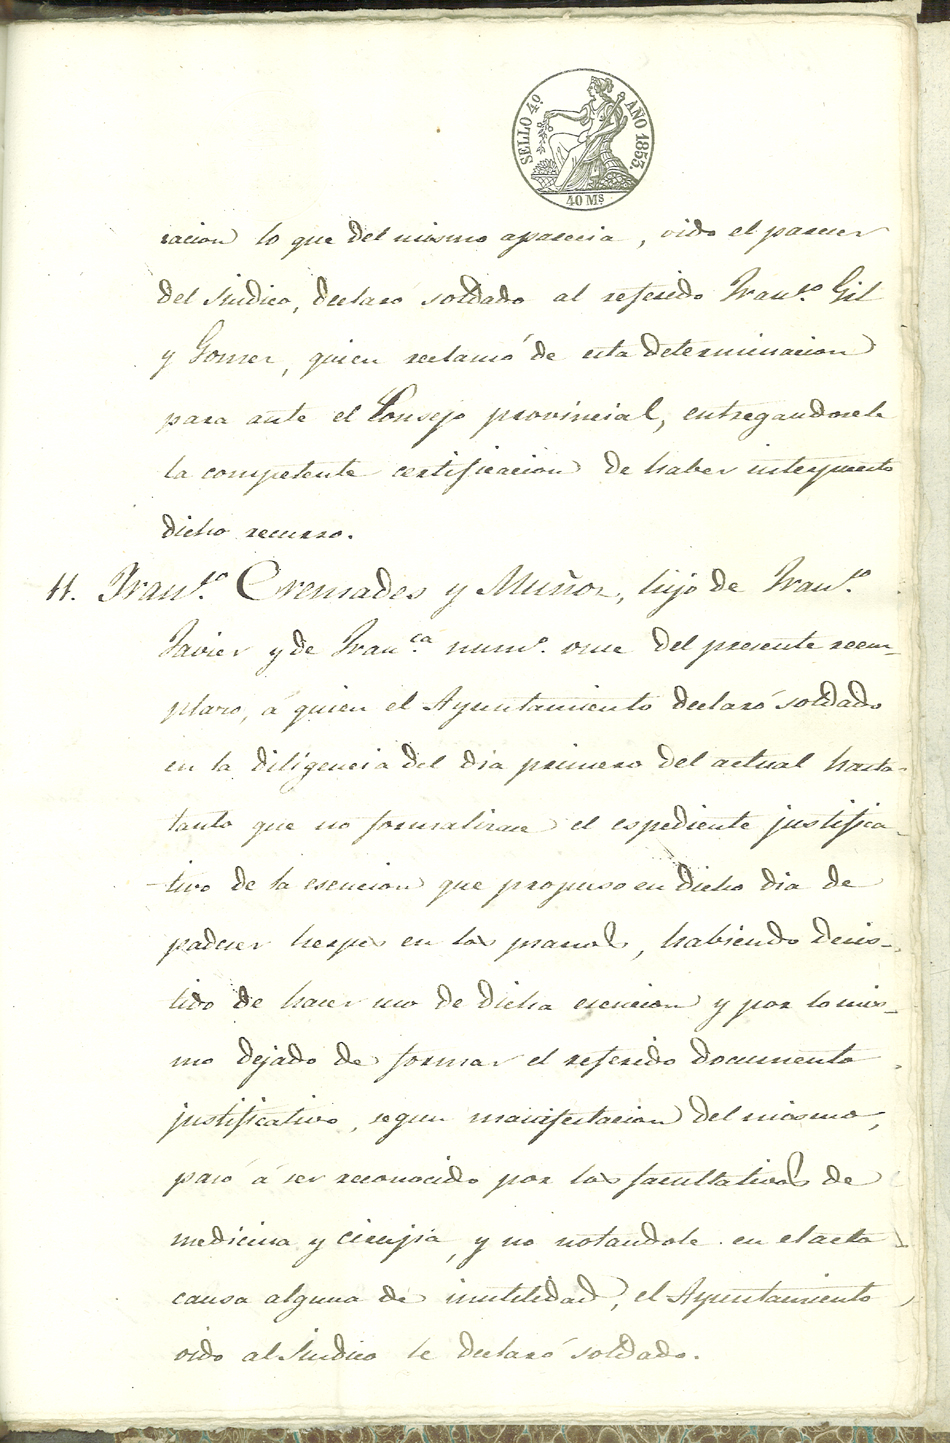 SELLO 4º AÑO 1855.
40 Mˢ
racion lo que del mismo aparecia, oido el parecer
del Sindico, declaró soldado al referido Franᶜᵒ Gil
y Gomez, quien reclamó de esta determinacion
para ante el Consejo provincial, entregandosele
la competente certificacion de haber interpuesto
dicho recurso.
11. Franᶜᵒ Cremades y Muñoz, hijo de Franᶜᵒ
Javier y de Franᶜᵃ numº. once del presente reem-
plazo, á quien el Ayuntamiento declaró soldado
en la diligencia del dia primero del actual hasta
tanto que no formalizase el espediente justifica-
tivo de la esencion que propuso en dicho dia de
padecer herpes en las piernas, habiendo desis-
tido de hacer uso de dicha esencion y por lo mis-
mo dejado de formar el referido documento
justificativo, segun manifestacion del mismo,
pasó á ser reconocido por los facultativos de
medicina y cirujia, y no notandole en el acto
causa alguna de inutilidad, el Ayuntamiento
oido al Sindico le declaró soldado.